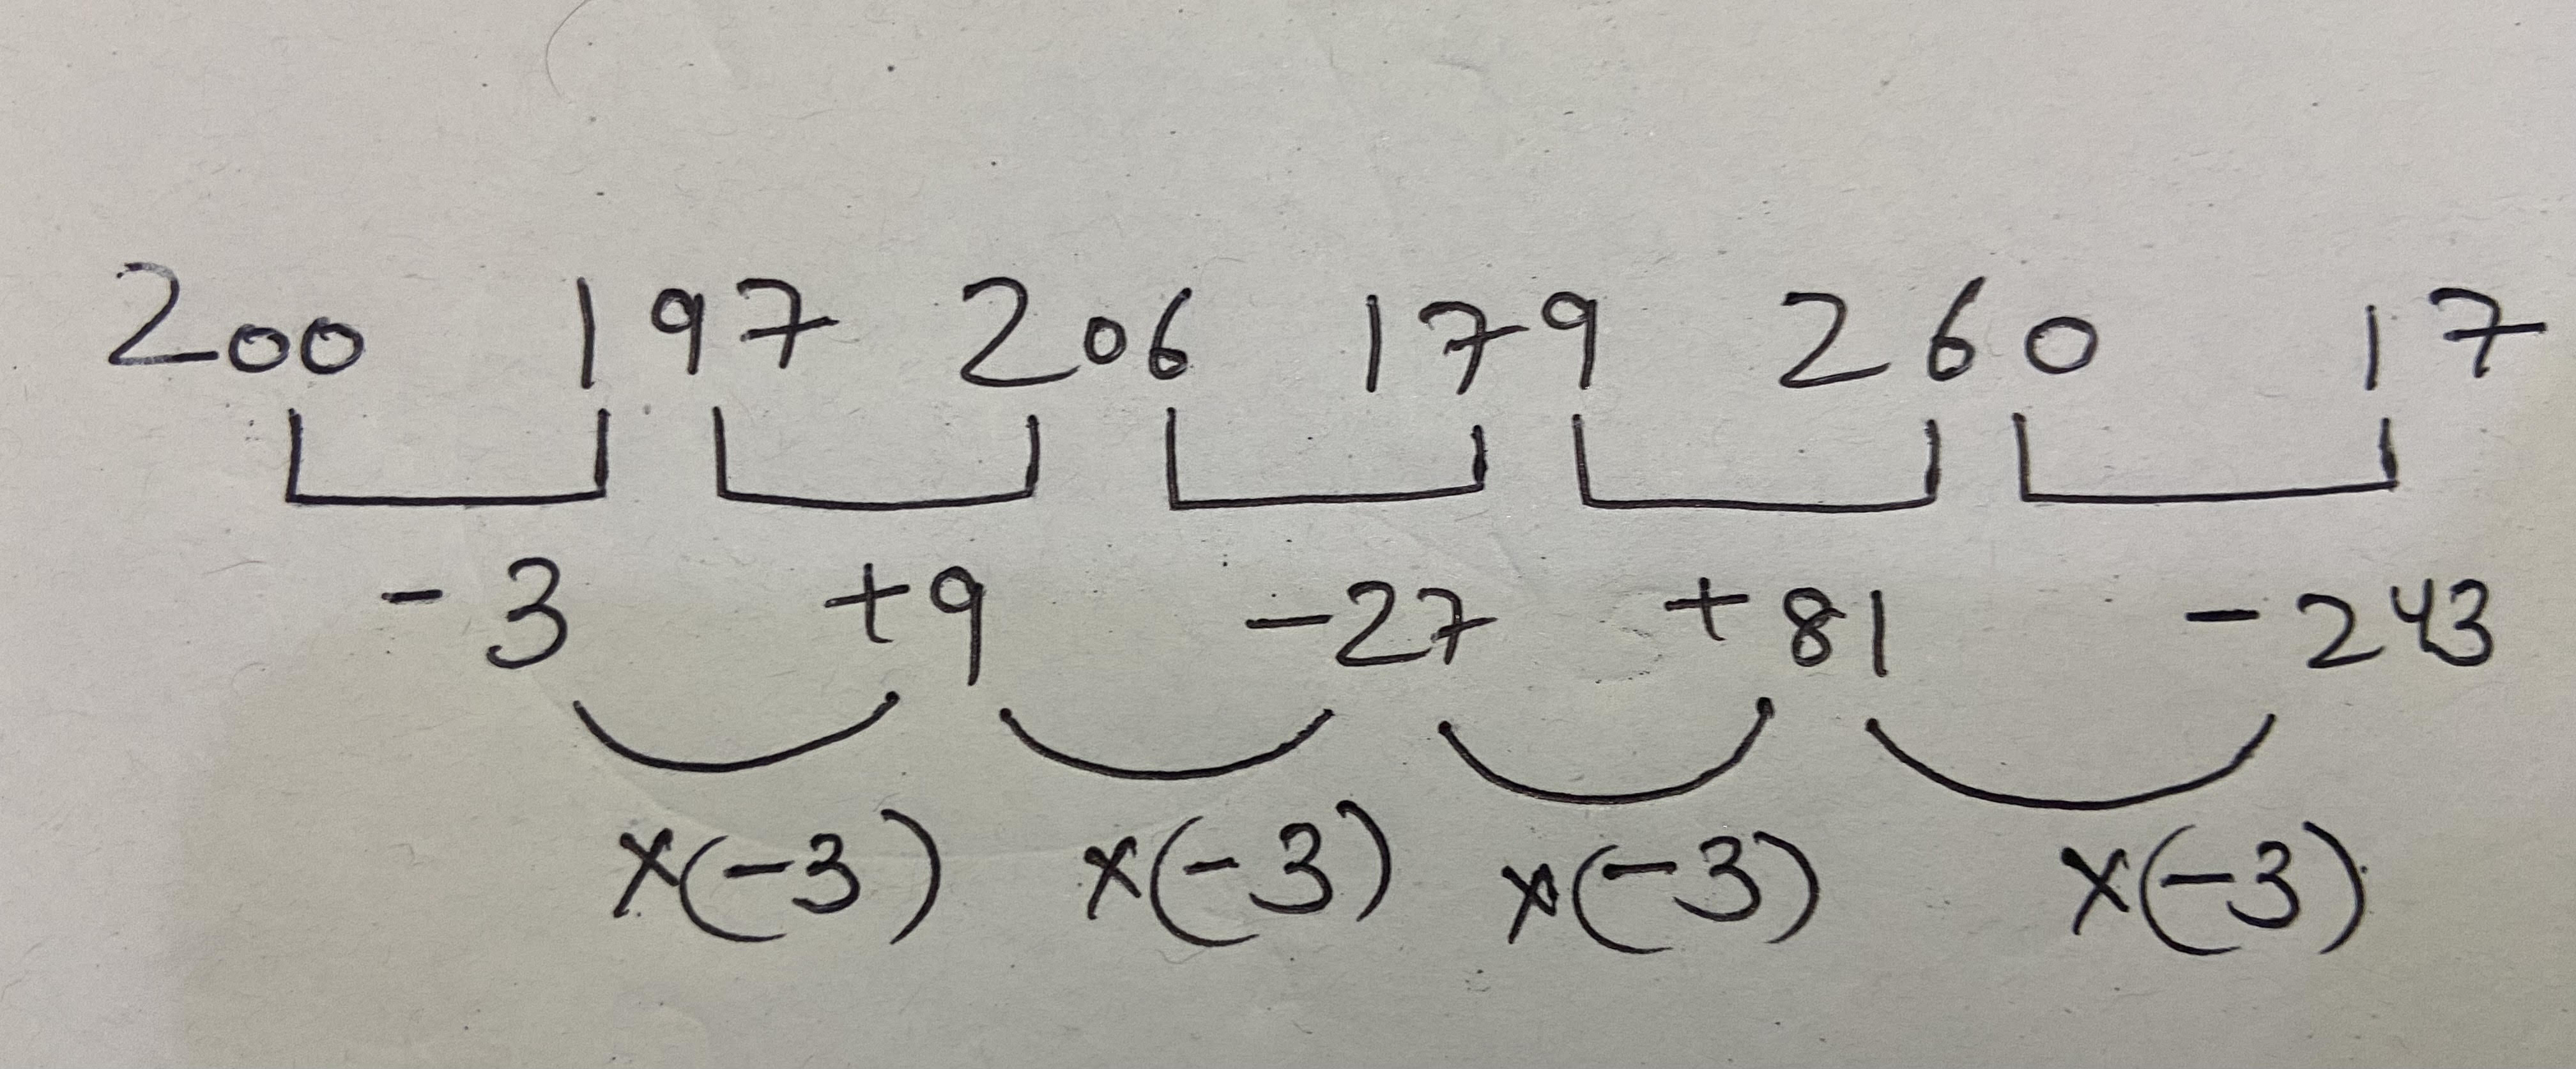 200 197 206 179 260 17
-3 +9 -27 +81 -243
×(-3) ×(-3) ×(-3) ×(-3)